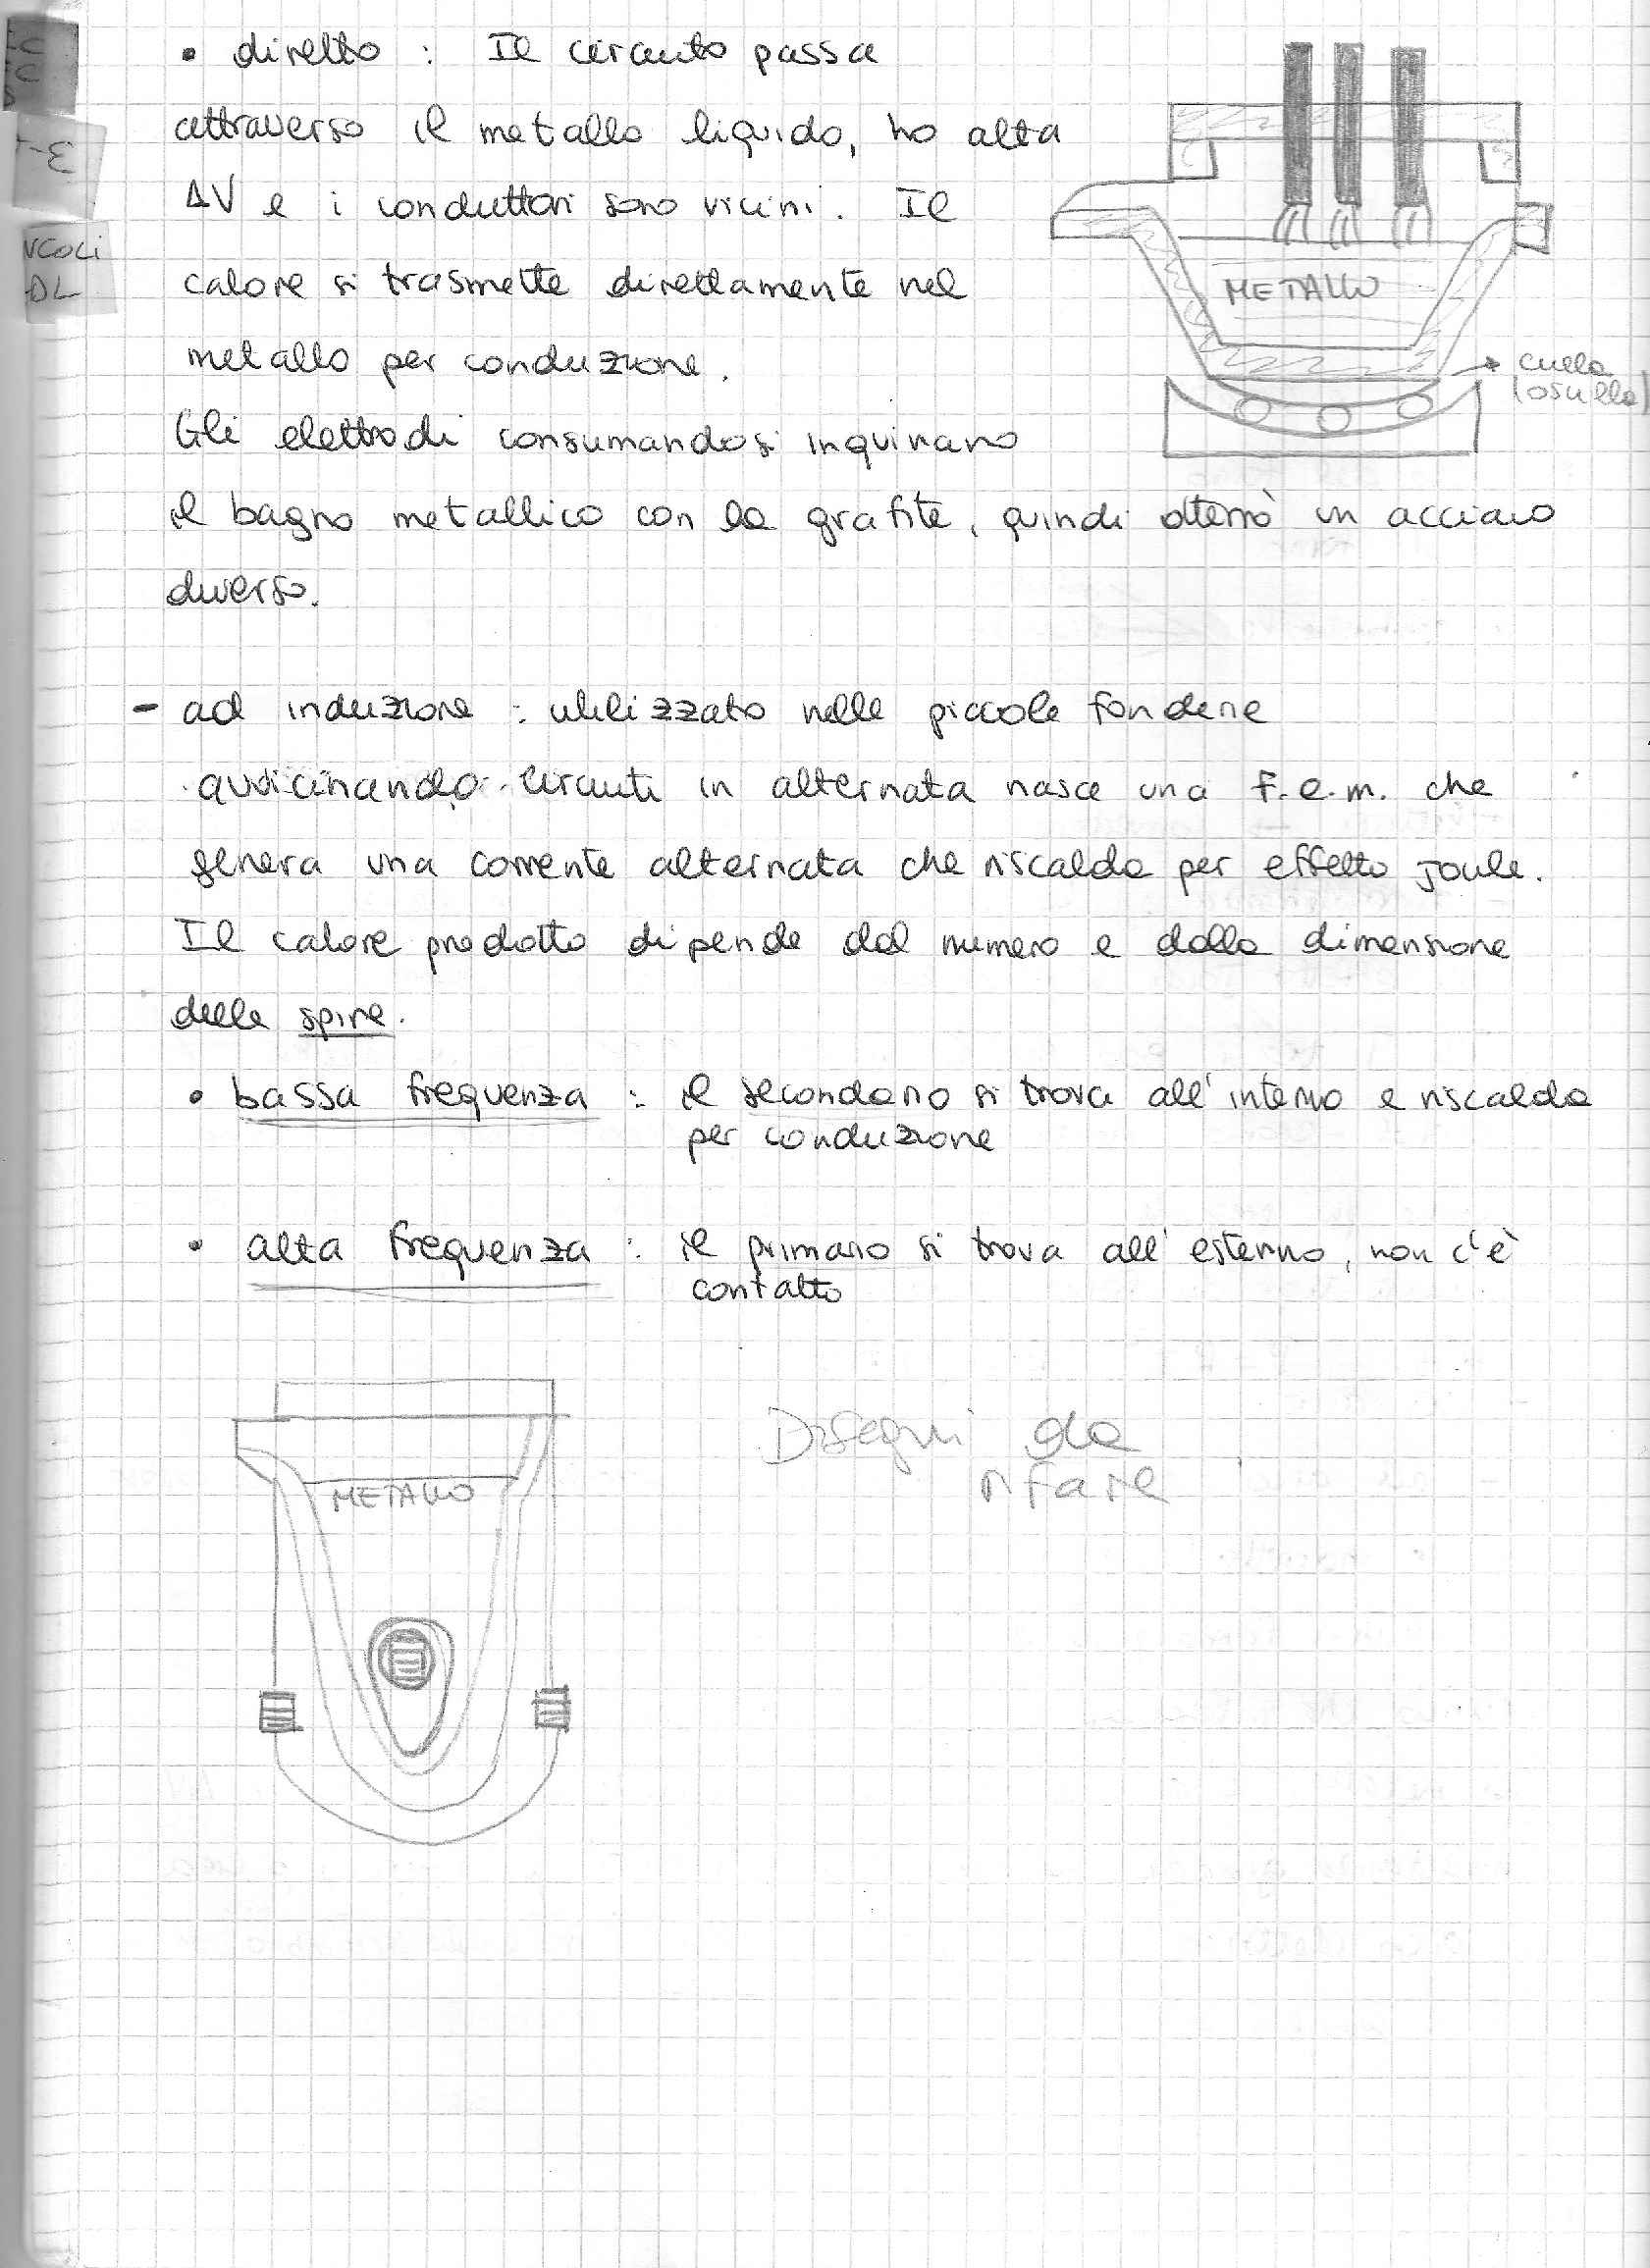 • diretto : Il circuito passa
attraverso il metallo liquido, ho alta
ΔV e i conduttori sono vicini. Il
calore si trasmette direttamente nel
metallo per conduzione.
Gli elettrodi consumandosi inquinano
il bagno metallico con la grafite, quindi otterrò un acciaio
diverso.
METALLO
→ culla
- ad induzione : utilizzato nelle piccole fonderie
avvicinando circuiti in alternata nasce una f.e.m. che
genera una corrente alternata che riscalda per effetto Joule.
Il calore prodotto dipende dal numero e dalla dimensione
delle spire.
• bassa frequenza : il secondario si trova all'interno e riscalda
per conduzione
• alta frequenza : il primario si trova all'esterno, non c'è
contatto
METALLO
Disegni da
rifare